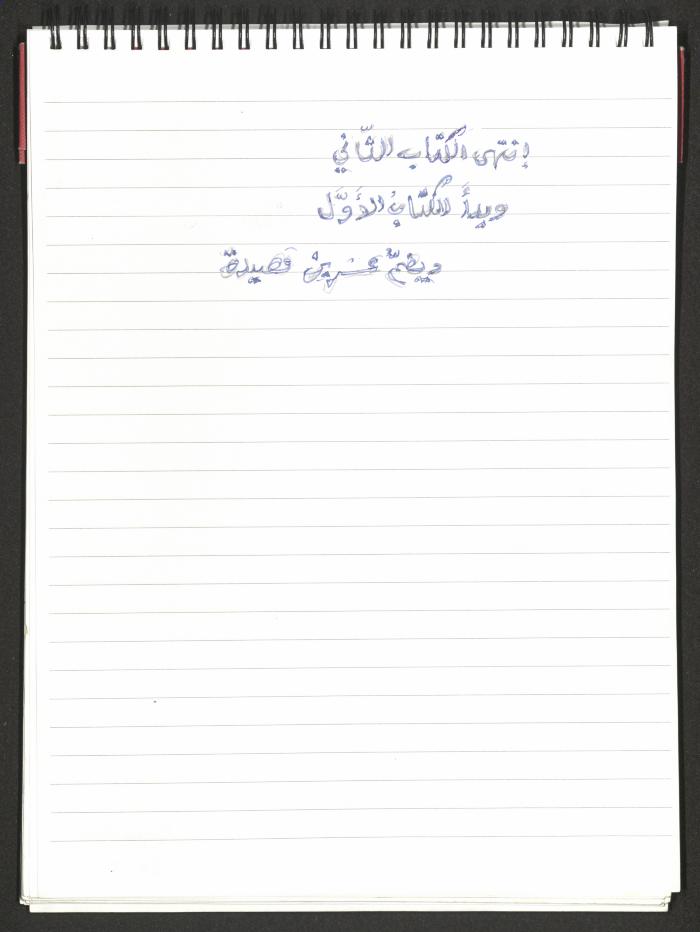 إنتهى الكتاب الثّاني
ويبدأَ الكتابُ الأَوَّل
ويضمّ عشرين قصيدة